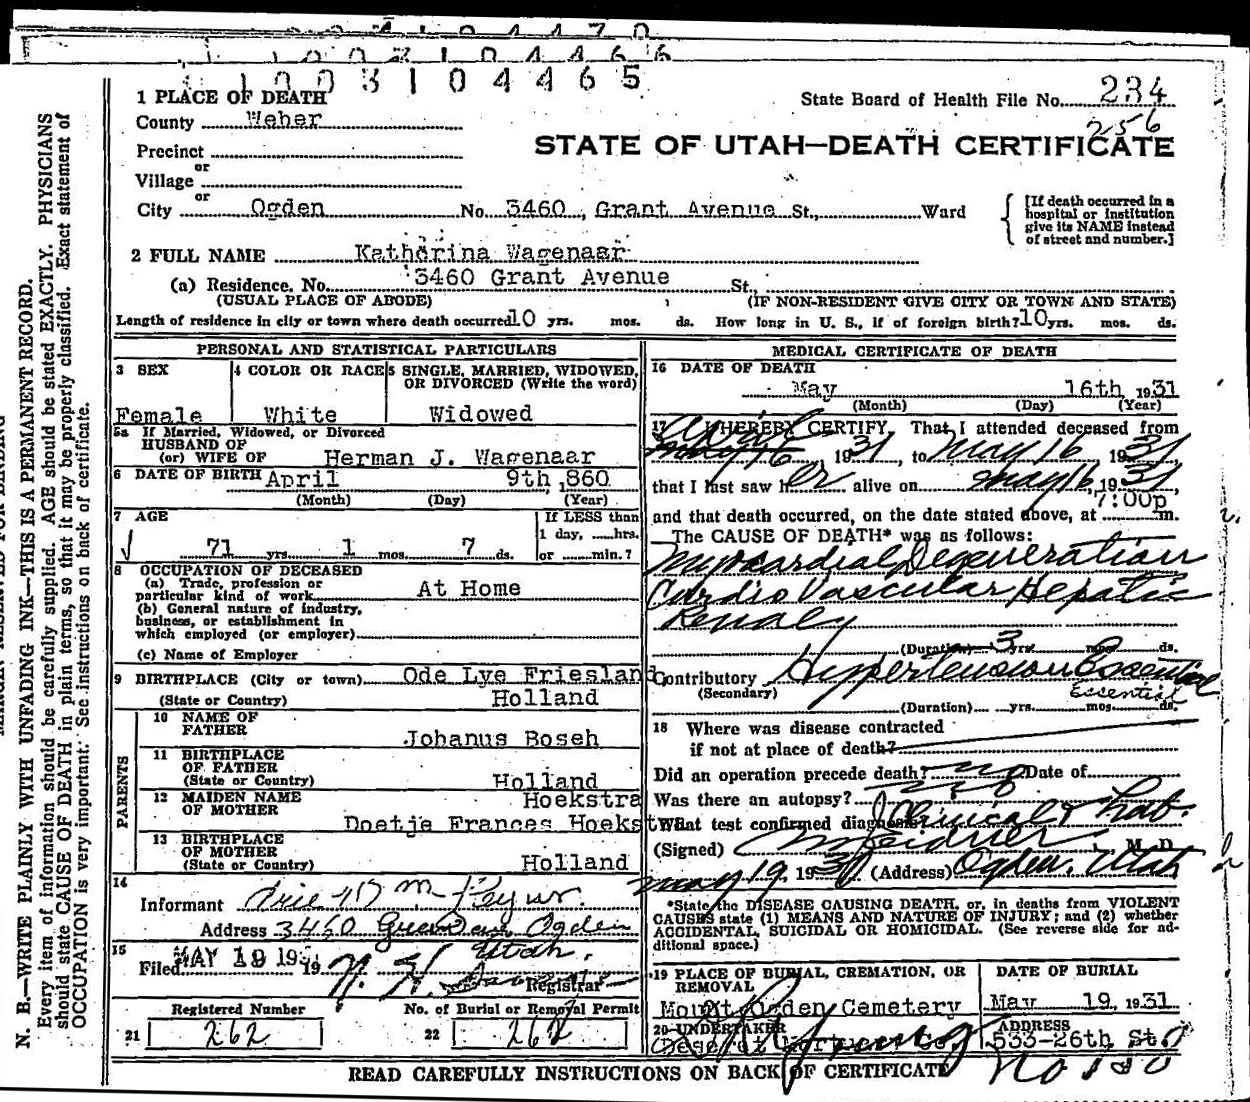 1003104470
1003104466
1003104465
1 PLACE OF DEATH
State Board of Health File No. 234
256
County Weber
STATE OF UTAH—DEATH CERTIFICATE
Precinct
or
Village
or
City Ogden No. 3460, Grant Avenue St., Ward
[If death occurred in a hospital or institution give its NAME instead of street and number.]
2 FULL NAME Katharina Wagenaar
(a) Residence. No. 3460 Grant Avenue St.,
(USUAL PLACE OF ABODE) (IF NON-RESIDENT GIVE CITY OR TOWN AND STATE)
Length of residence in city or town where death occurred 10 yrs. mos. ds. How long in U. S., if of foreign birth? 10 yrs. mos. ds.
PERSONAL AND STATISTICAL PARTICULARS
3 SEX 4 COLOR OR RACE 5 SINGLE, MARRIED, WIDOWED,
OR DIVORCED (Write the word)
Female White Widowed
5a If Married, Widowed, or Divorced
HUSBAND OF
(or) WIFE OF Herman J. Wagenaar
6 DATE OF BIRTH April 9th, 860
(Month) (Day) (Year)
7 AGE
If LESS than
1 day, hrs.
71 yrs. 1 mos. 7 ds. or min.?
8 OCCUPATION OF DECEASED
(a) Trade, profession or
particular kind of work At Home
(b) General nature of industry,
business, or establishment in
which employed (or employer)
(c) Name of Employer
9 BIRTHPLACE (City or town) Ode Lye Friesland
(State or Country) Holland
PARENTS
10 NAME OF
FATHER Johanus Boseh
11 BIRTHPLACE
OF FATHER
(State or Country) Holland
12 MAIDEN NAME Hoekstra
OF MOTHER
Doetje Frances Hoekstra
13 BIRTHPLACE
OF MOTHER
(State or Country) Holland
14
Informant
Address 3460 Ogden
15 Utah.
Filed MAY 19 19 N. H. Registrar
Registered Number No. of Burial or Removal Permit
21 262 22 262
MEDICAL CERTIFICATE OF DEATH
16 DATE OF DEATH
May 16th 1931
(Month) (Day) (Year)
17 I HEREBY CERTIFY, That I attended deceased from
May 16 1931, to May 16 1931
that I last saw her alive on May 16, 1931,
and that death occurred, on the date stated above, at 7:00p m.
The CAUSE OF DEATH* was as follows:
Myocardial Degeneration
Cardio Vascular Hepatic
Renal
(Duration) 3 yrs. mos. ds.
Contributory Hypertension Essential
(Secondary) Essential
(Duration) yrs. mos. ds.
18 Where was disease contracted
if not at place of death?
Did an operation precede death? no Date of
Was there an autopsy? no
What test confirmed diagnosis? Clinical & Lab.
(Signed) M. D.
May 19, 1930 (Address) Ogden, Utah
*State the DISEASE CAUSING DEATH, or, in deaths from VIOLENT
CAUSES state (1) MEANS AND NATURE OF INJURY; and (2) whether
ACCIDENTAL, SUICIDAL OR HOMICIDAL. (See reverse side for ad-
ditional space.)
19 PLACE OF BURIAL, CREMATION, OR DATE OF BURIAL
REMOVAL
Mount Ogden Cemetery May 19, 1931
20 UNDERTAKER ADDRESS
Deseret Mortuary Co. 533-26th St.
No 180
READ CAREFULLY INSTRUCTIONS ON BACK OF CERTIFICATE
MARGIN RESERVED FOR BINDING
N. B.—WRITE PLAINLY WITH UNFADING INK—THIS IS A PERMANENT RECORD.
Every item of information should be carefully supplied. AGE should be stated EXACTLY. PHYSICIANS
should state CAUSE OF DEATH in plain terms, so that it may be properly classified. Exact statement of
OCCUPATION is very important. See instructions on back of certificate.